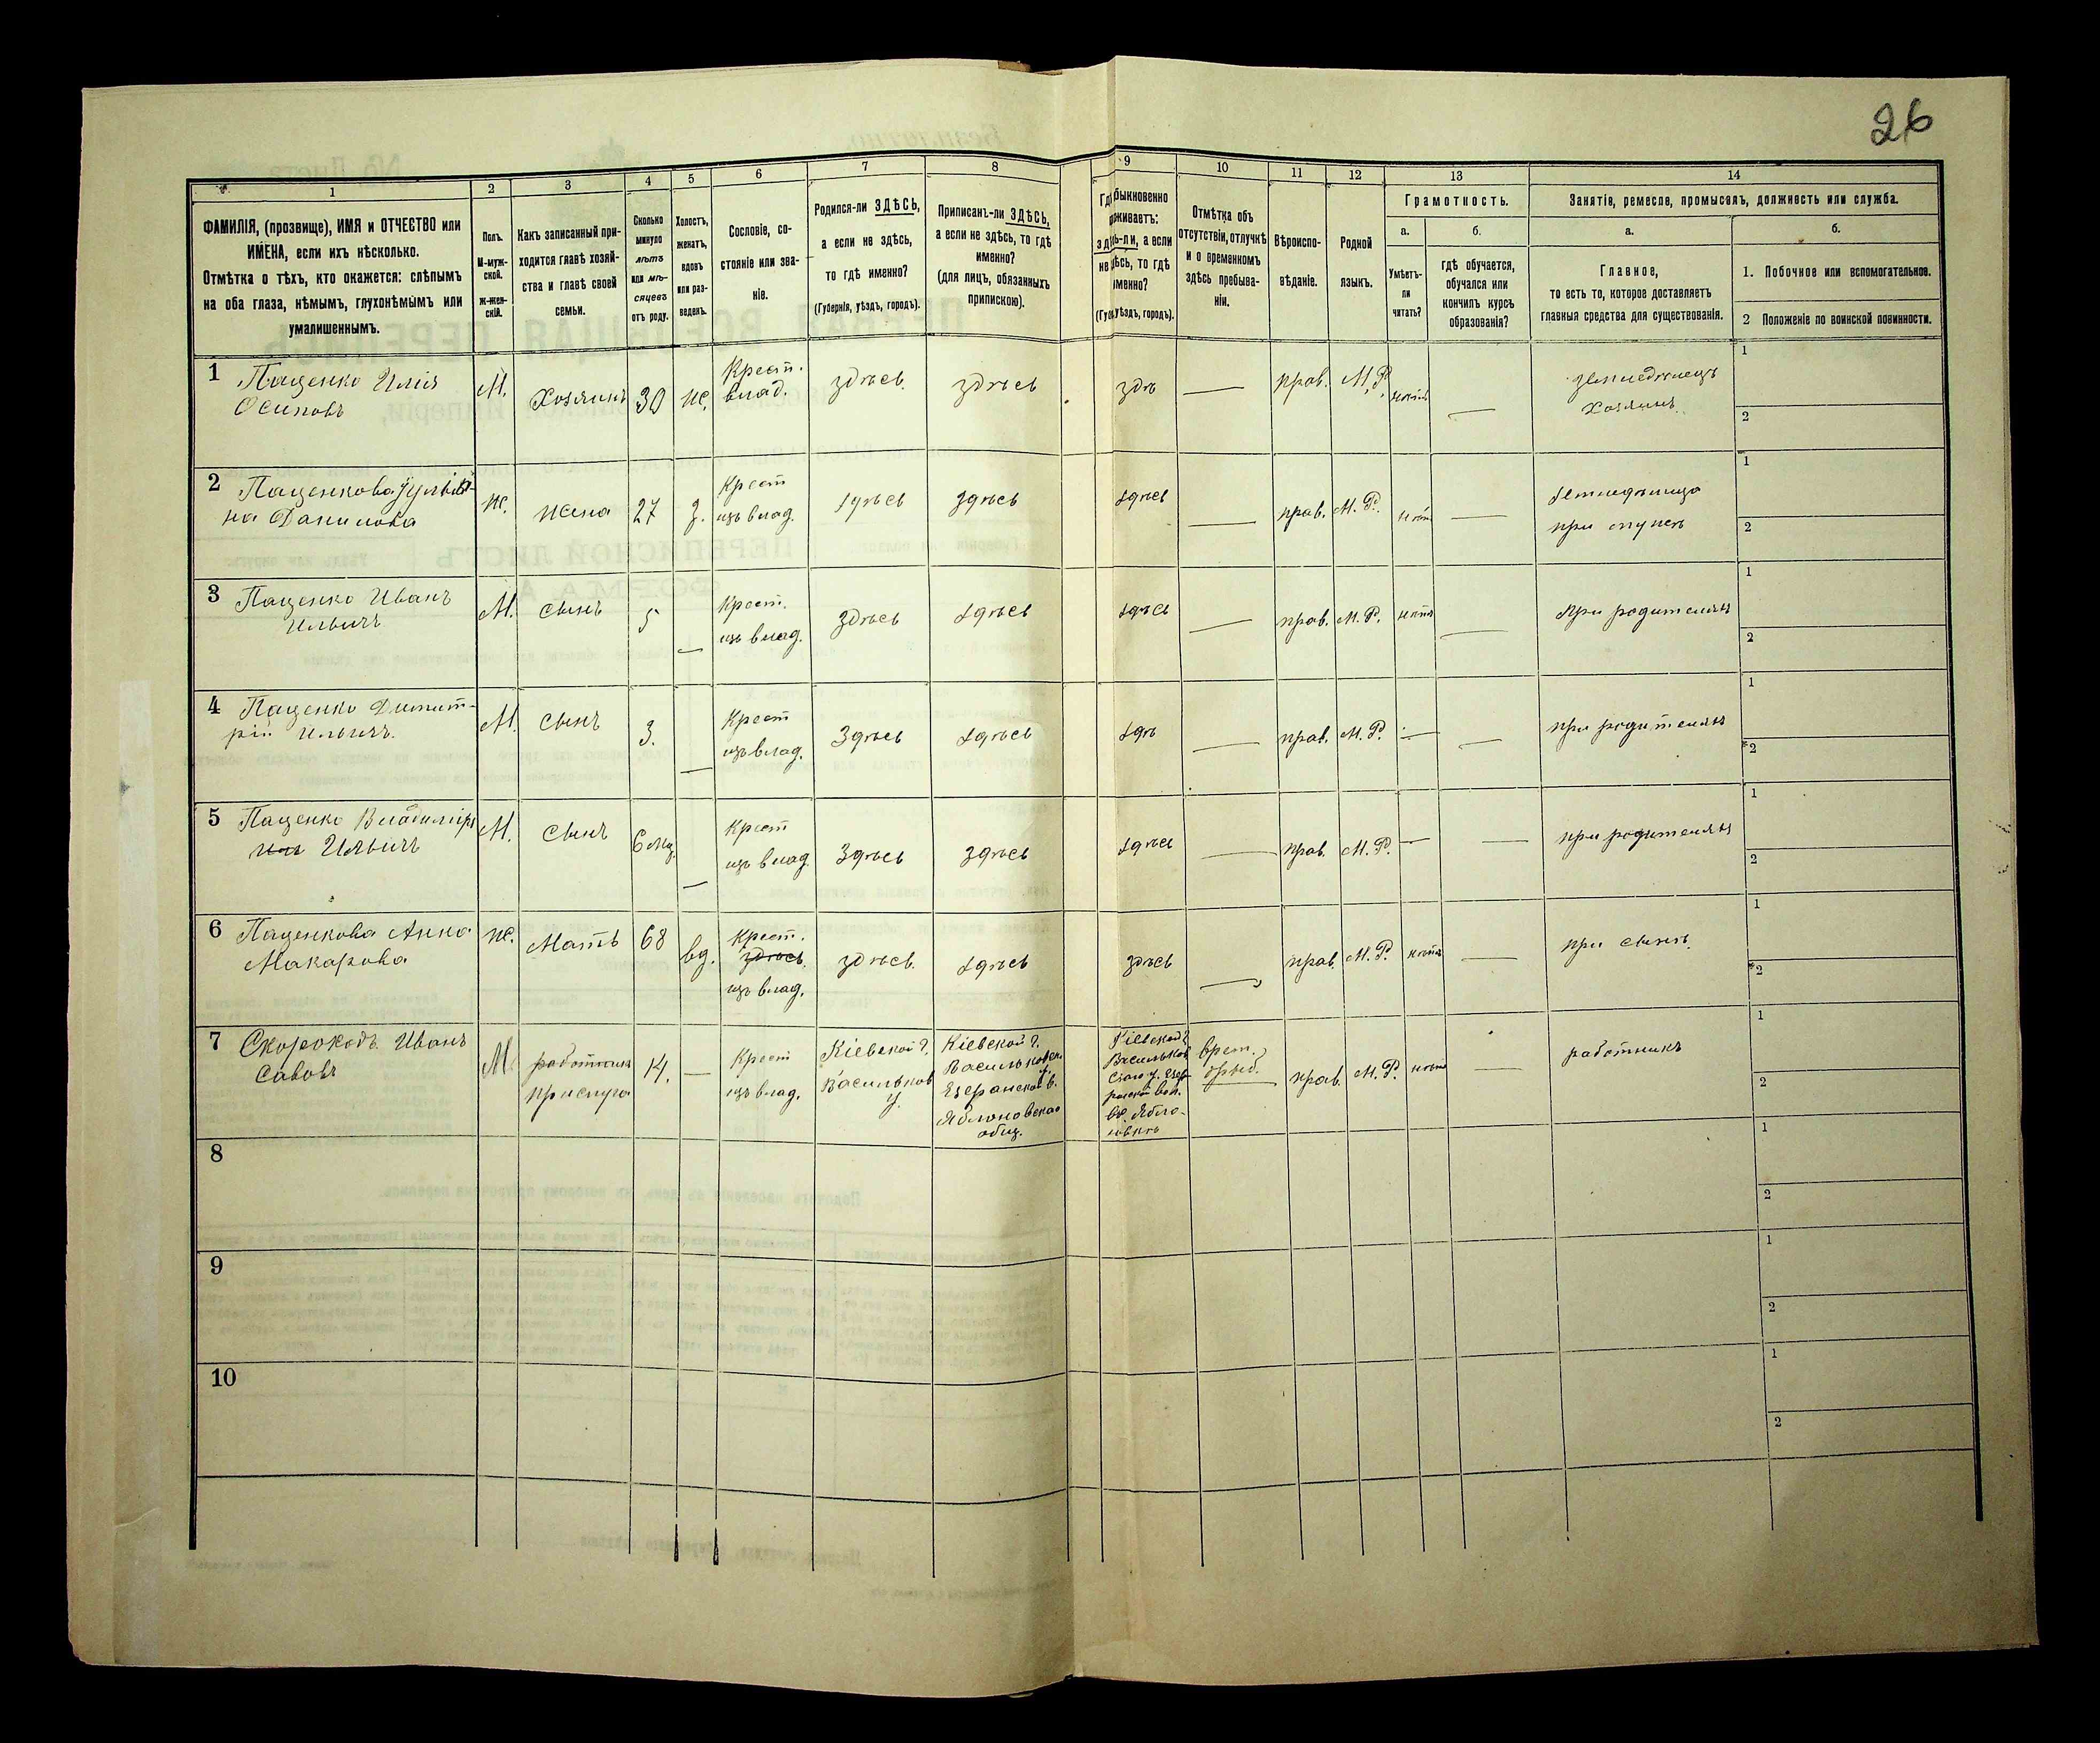 26
1
2
3
4
5
6
7
8
9
10
11
12
13
14
ФАМИЛІЯ, (прозвище), ИМЯ и ОТЧЕСТВО или
ИМЕНА, если ихъ нѣсколько.
Отмѣтка о тѣхъ, кто окажется: слѣпымъ
на оба глаза, нѣмымъ, глухонѣмымъ или
умалишеннымъ.
Полъ.
М-муж-
ской.
Ж-жен-
скій.
Какъ записанный при-
ходится главѣ хозяй-
ства и главѣ своей
семьи.
Сколько
минуло
лѣтъ
или мѣ-
сяцевъ
отъ роду.
Холостъ,
женатъ,
вдовъ
или раз-
веденъ.
Сословіе, со-
стояніе или зва-
ніе.
Родился-ли ЗДѢСЬ,
а если не здѣсь,
то гдѣ именно?
(Губернія, уѣздъ, городъ).
Приписанъ-ли ЗДѢСЬ,
а если не здѣсь, то гдѣ
именно?
(для лицъ, обязанныхъ
припискою).
Гдѣ обыкновенно
проживаетъ:
здѣсь-ли, а если
не здѣсь, то гдѣ
именно?
(Губ., уѣздъ, городъ).
Отмѣтка объ
отсутствіи, отлучкѣ
и о временномъ
здѣсь пребыва-
ніи.
Вѣроиспо-
вѣданіе.
Родной
языкъ.
Грамотность.
а.
б.
Умѣетъ-
ли
читать?
гдѣ обучается,
обучался или
кончилъ курсъ
образованія?
Занятіе, ремесло, промыселъ, должность или служба.
а.
б.
Главное,
то есть то, которое доставляетъ
главныя средства для существованія.
1. Побочное или вспомогательное.
2 Положеніе по воинской повинности.
1 Пащенко Илія
Осиповъ
М.
Хозяинъ
30
же.
Крест.
влад.
здѣсь.
здѣсь
здѣ
—
прав.
М.Р.
нѣтъ
—
земледѣлецъ
хозяинъ.
1
2
2 Пащенкова
на Данилова
же.
жена
27
з.
Крест
изъ влад.
здѣсь
здѣсь
здѣсь
—
прав.
М. Р.
нѣт
—
земледѣлица
при мужѣ
1
2
3 Пащенко Иванъ
Ильичъ
М.
сынъ
5
—
Крест.
изъ влад.
здѣсь
здѣсь
здѣсь
—
прав.
М. Р.
нѣтъ
—
При родителяхъ
1
2
4 Пащенко Димит-
рій Ильичъ.
М
сынъ
3.
—
Крест
изъ влад.
Здѣсь
здѣсь
здѣ
—
прав.
М. Р.
—
—
при родителяхъ
1
2
5 Пащенко Владиміръ
Ильичъ
М.
сынъ
6 мц.
—
Крест
изъ влад.
Здѣсь
здѣсь
здѣсь
—
прав.
М. Р.
—
—
при родителяхъ
1
2
6 Пащенкова Анна
Макарова
же.
Мать
68
вд.
Крест.
здѣсь
изъ влад.
здѣсь.
здѣсь
здѣсь
—
прав.
М. Р.
нѣтъ
—
при сынѣ.
1
2
7 Скороходъ Иванъ
Савовъ
М.
работникъ
прислуга
14.
—
Крест
изъ влад.
Кіевской г.
Васильков
у.
Кіевской г.
Васильковск.
у.
Езерянской в.
Яблоновская
общ.
Кіевской г
Васильков
скаго у. Езер
рянской вол.
въ Ябло-
новкѣ
врем.
преб.
прав.
М. Р.
нѣтъ
—
работникъ
1
2
8
1
2
9
1
2
10
1
2